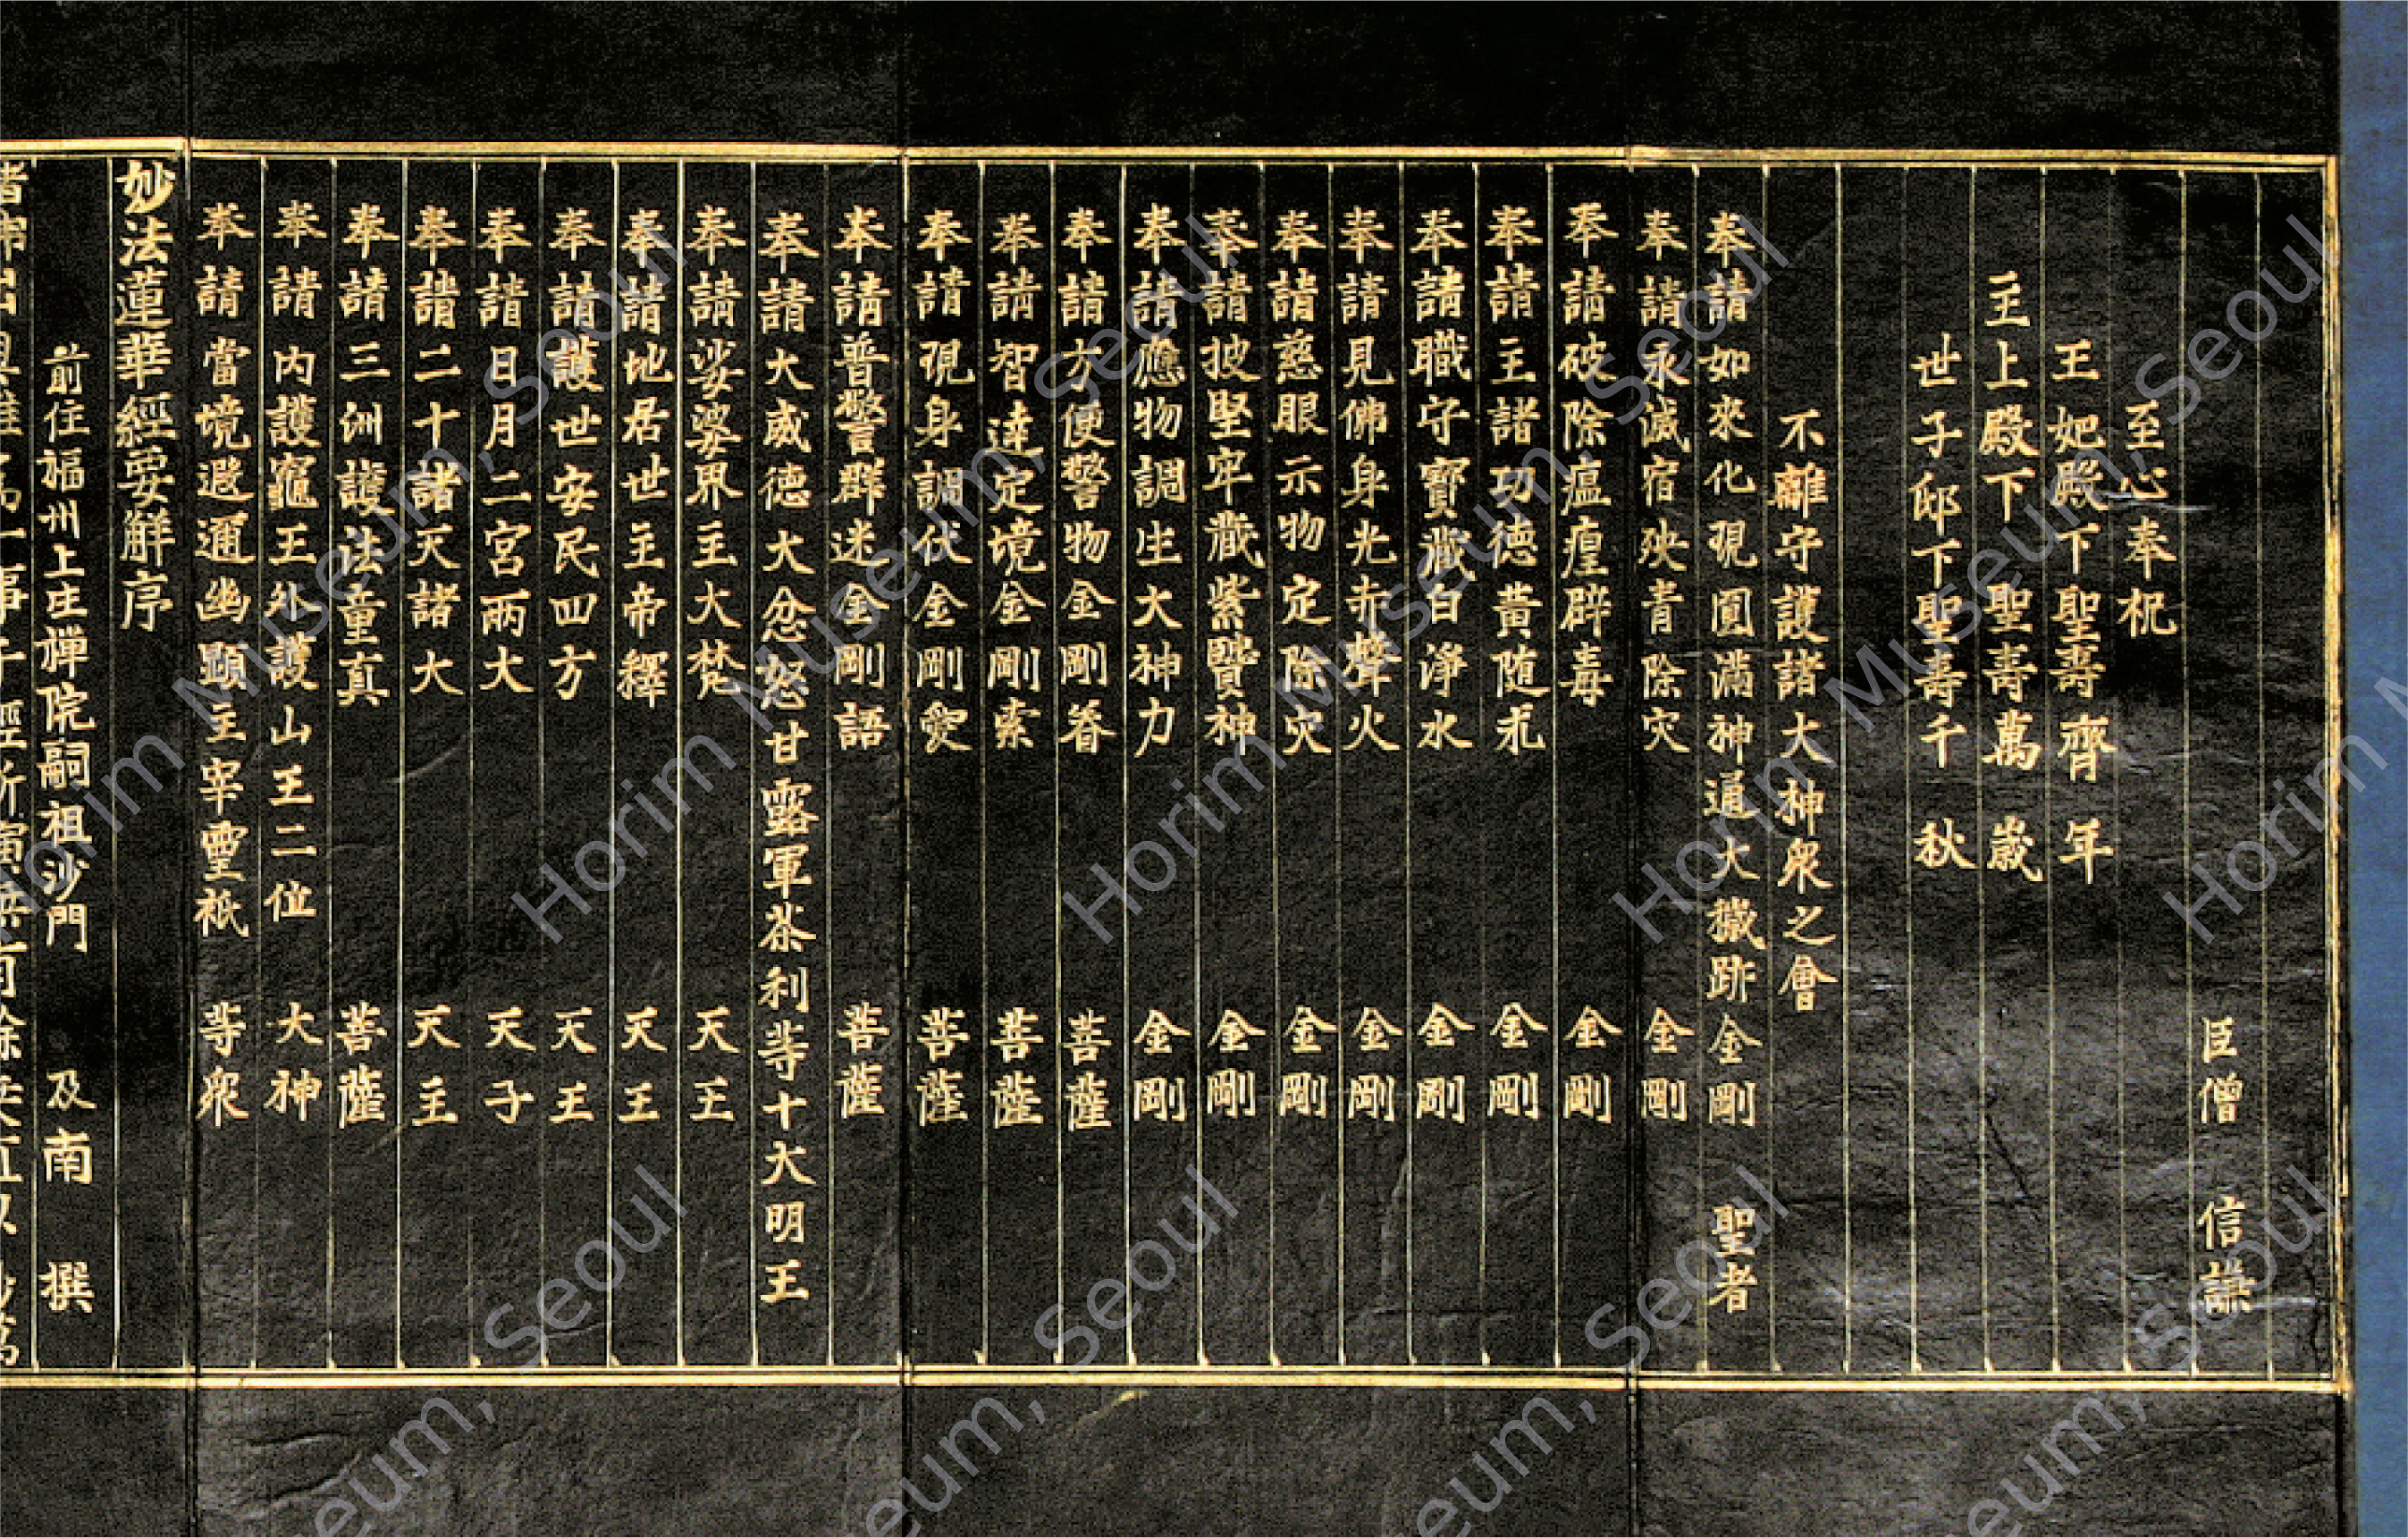 臣僧 信謙
至心奉祝
王妃殿下聖壽齊年
主上殿下聖壽萬歲
世子邸下聖壽千秋
不離守護諸大神衆之會
奉請如來化現圓滿神通大穢跡金剛 聖者
奉請永滅宿殃青除灾 金剛
奉請破除瘟瘴辟毒 金剛
奉請主諸功德黃随求 金剛
奉請職守寶藏白淨水 金剛
奉請見佛身光赤聲火 金剛
奉請慈眼示物定除灾 金剛
奉請披堅牢藏紫賢神 金剛
奉請應物調生大神力 金剛
奉請方便警物金剛眷 菩薩
奉請智達定境金剛索 菩薩
奉請現身調伏金剛愛 菩薩
奉請普警群迷金剛語 菩薩
奉請大威德大忿怒甘露軍茶利等十大明王
奉請娑婆界主大梵 天王
奉請地居世主帝釋 天王
奉請護世安民四方 天王
奉請日月二宮兩大 天子
奉請二十諸天諸大 天主
奉請三洲護法童真 菩薩
奉請内護竈王外護山王二位 大神
奉請當境遐邇幽顯主宰靈祇 等衆
妙法蓮華經要觧序
前住福州上生禅院嗣祖沙門 及南 撰
Horim Museum, Seoul